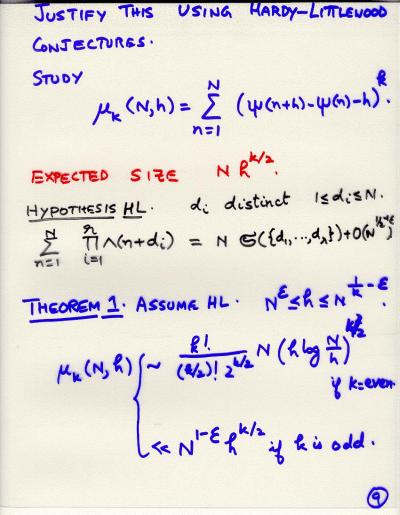 JUSTIFY THIS USING HARDY-LITTLEWOOD
CONJECTURES.
STUDY
μ_k (N,h) = Σ_{n=1}^{N} (ψ(n+h)-ψ(n)-h)^k.
EXPECTED SIZE N h^{k/2}.
HYPOTHESIS HL. d_i distinct 1≤d_i≤N.
Σ_{n=1}^{N} Π_{i=1}^{r} Λ(n+d_i) = N 𝔖({d_1,...,d_r})+O(N^{1/2+ε})
THEOREM 1. ASSUME HL. N^ε ≤ h ≤ N^{1/k - ε}
μ_k (N,h) { ~ k!/((k/2)! 2^{k/2}) N (h log N/h)^{k/2}
if k=even
≪ N^{1-ε} h^{k/2} if k is odd.
9